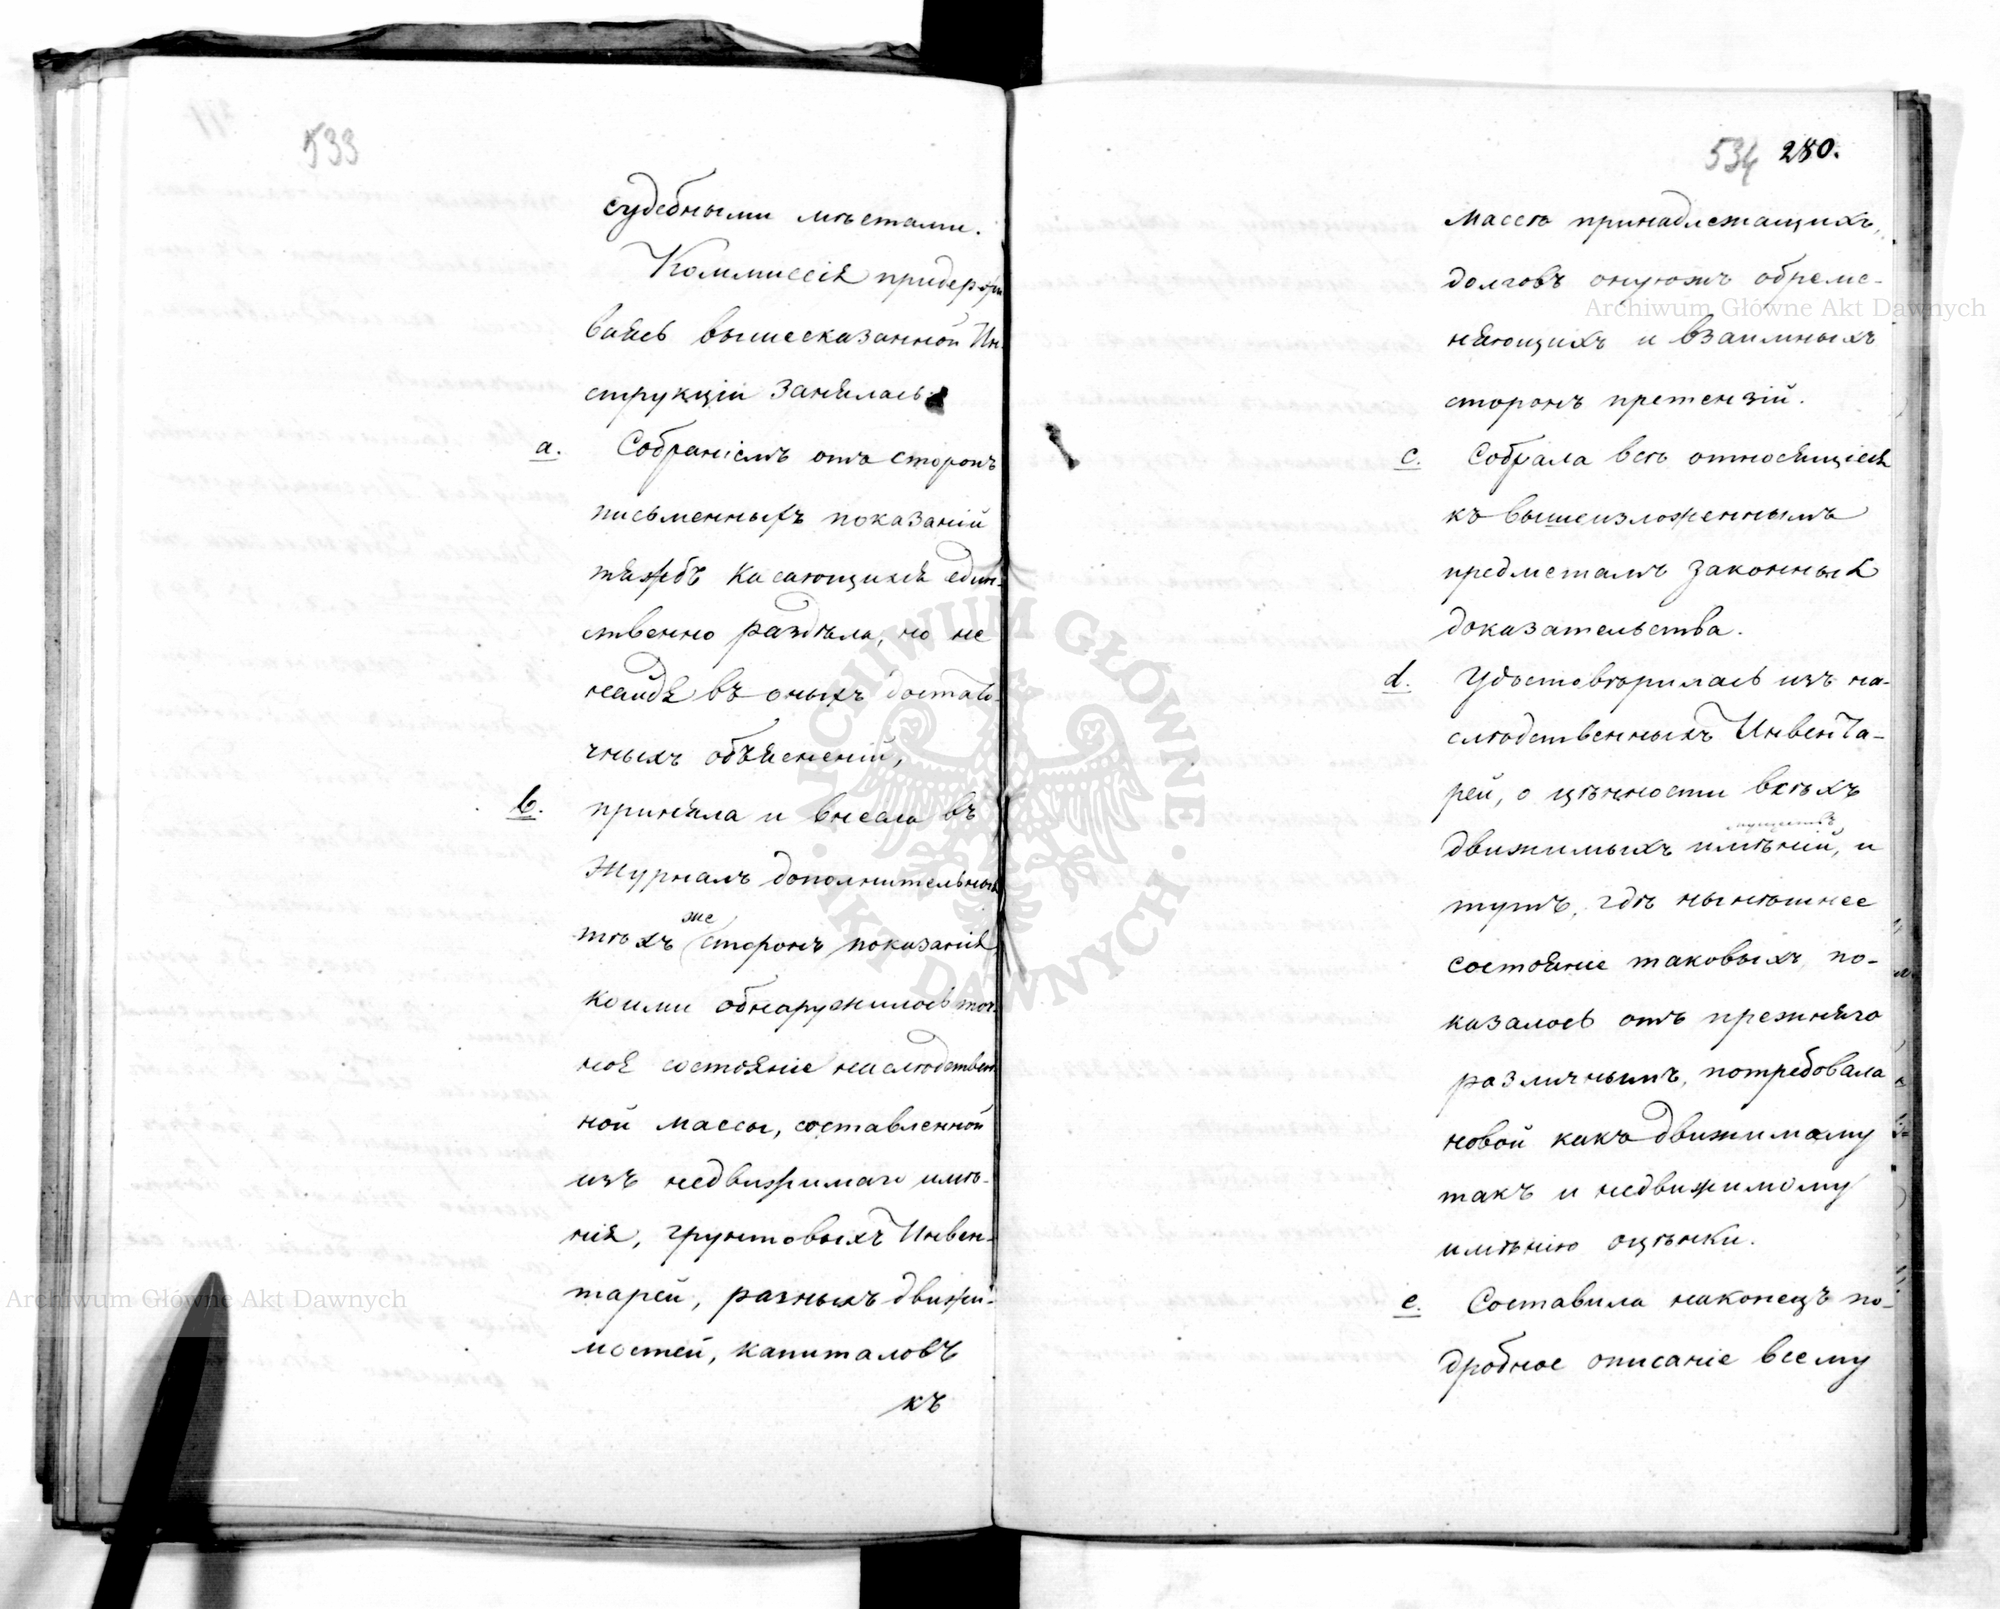 533
судебными мѣстами.
Коммиссія придержи
ваясь вышесказанной Ин-
струкціи занялась:
a. Собраніемъ отъ сторонъ
письменныхъ показаній
тяжбъ касающихся един-
ственно раздѣла, но не
найдя въ оныхъ достато-
чныхъ объясненій,
b. приняла и внесла въ
Журналъ дополнительныя
тѣхъ же сторонъ показанія,
коими обнаружилось точ-
ное состояніе наслѣдствен
ной массы, составленной
изъ недвижимаго имѣ-
нія, грунтовыхъ Инвен-
тарей, разныхъ движи-
мостей, капиталовъ
къ
534 280.
массѣ принадлежащихъ,
долговъ оную обреме-
няющихъ и взаимныхъ
сторонъ претензій.
c. Собрала всѣ относящіеся
къ вышеизложеннымъ
предметамъ законныя
доказательства.
d. Удостовѣрилась изъ на-
слѣдственныхъ Инвента-
рей, о цѣнности всѣхъ
движимыхъ имѣній, и
тутъ, гдѣ нынѣшнее
состояніе таковыхъ по-
казалось отъ прежняго
различнымъ, потребовала
новой какъ движимому
такъ и недвижимому
имѣнію оцѣнки.
e. Составила наконецъ по-
дробное описаніе всему
Archiwum Główne Akt Dawnych
Archiwum Główne Akt Dawnych
ARCHIWUM GŁÓWNE · AKT DAWNYCH ·